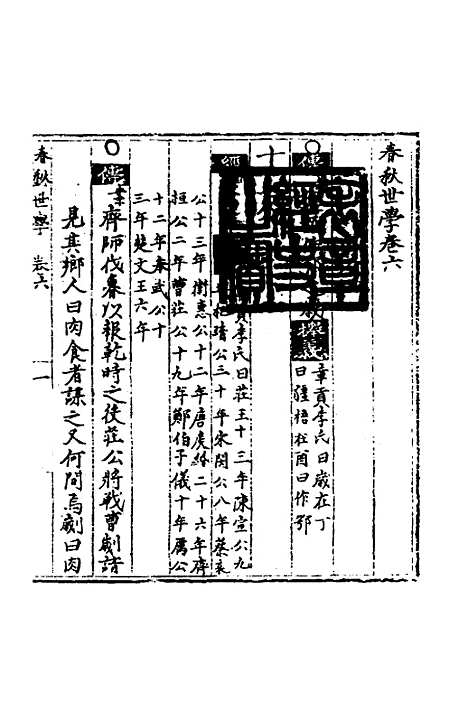 春秋世學卷六
傳
義
章貢李氏曰歲在丁
曰疆梧在酉曰作鄂
經
貢李氏曰莊王十三年陳宣公九
靖公三十年宋閔公八年蔡哀
公十三年衛惠公十二年唐侯 二十六年齊
桓公二年曹莊公十九年鄭伯子儀十年厲公
十二年秦武公十
三年楚文王六年
傳
齊師伐魯以報乾時之役莊公將戰曹劌請
見其鄉人曰肉食者謀之又何間焉劌曰肉
春秋世學 卷六 一